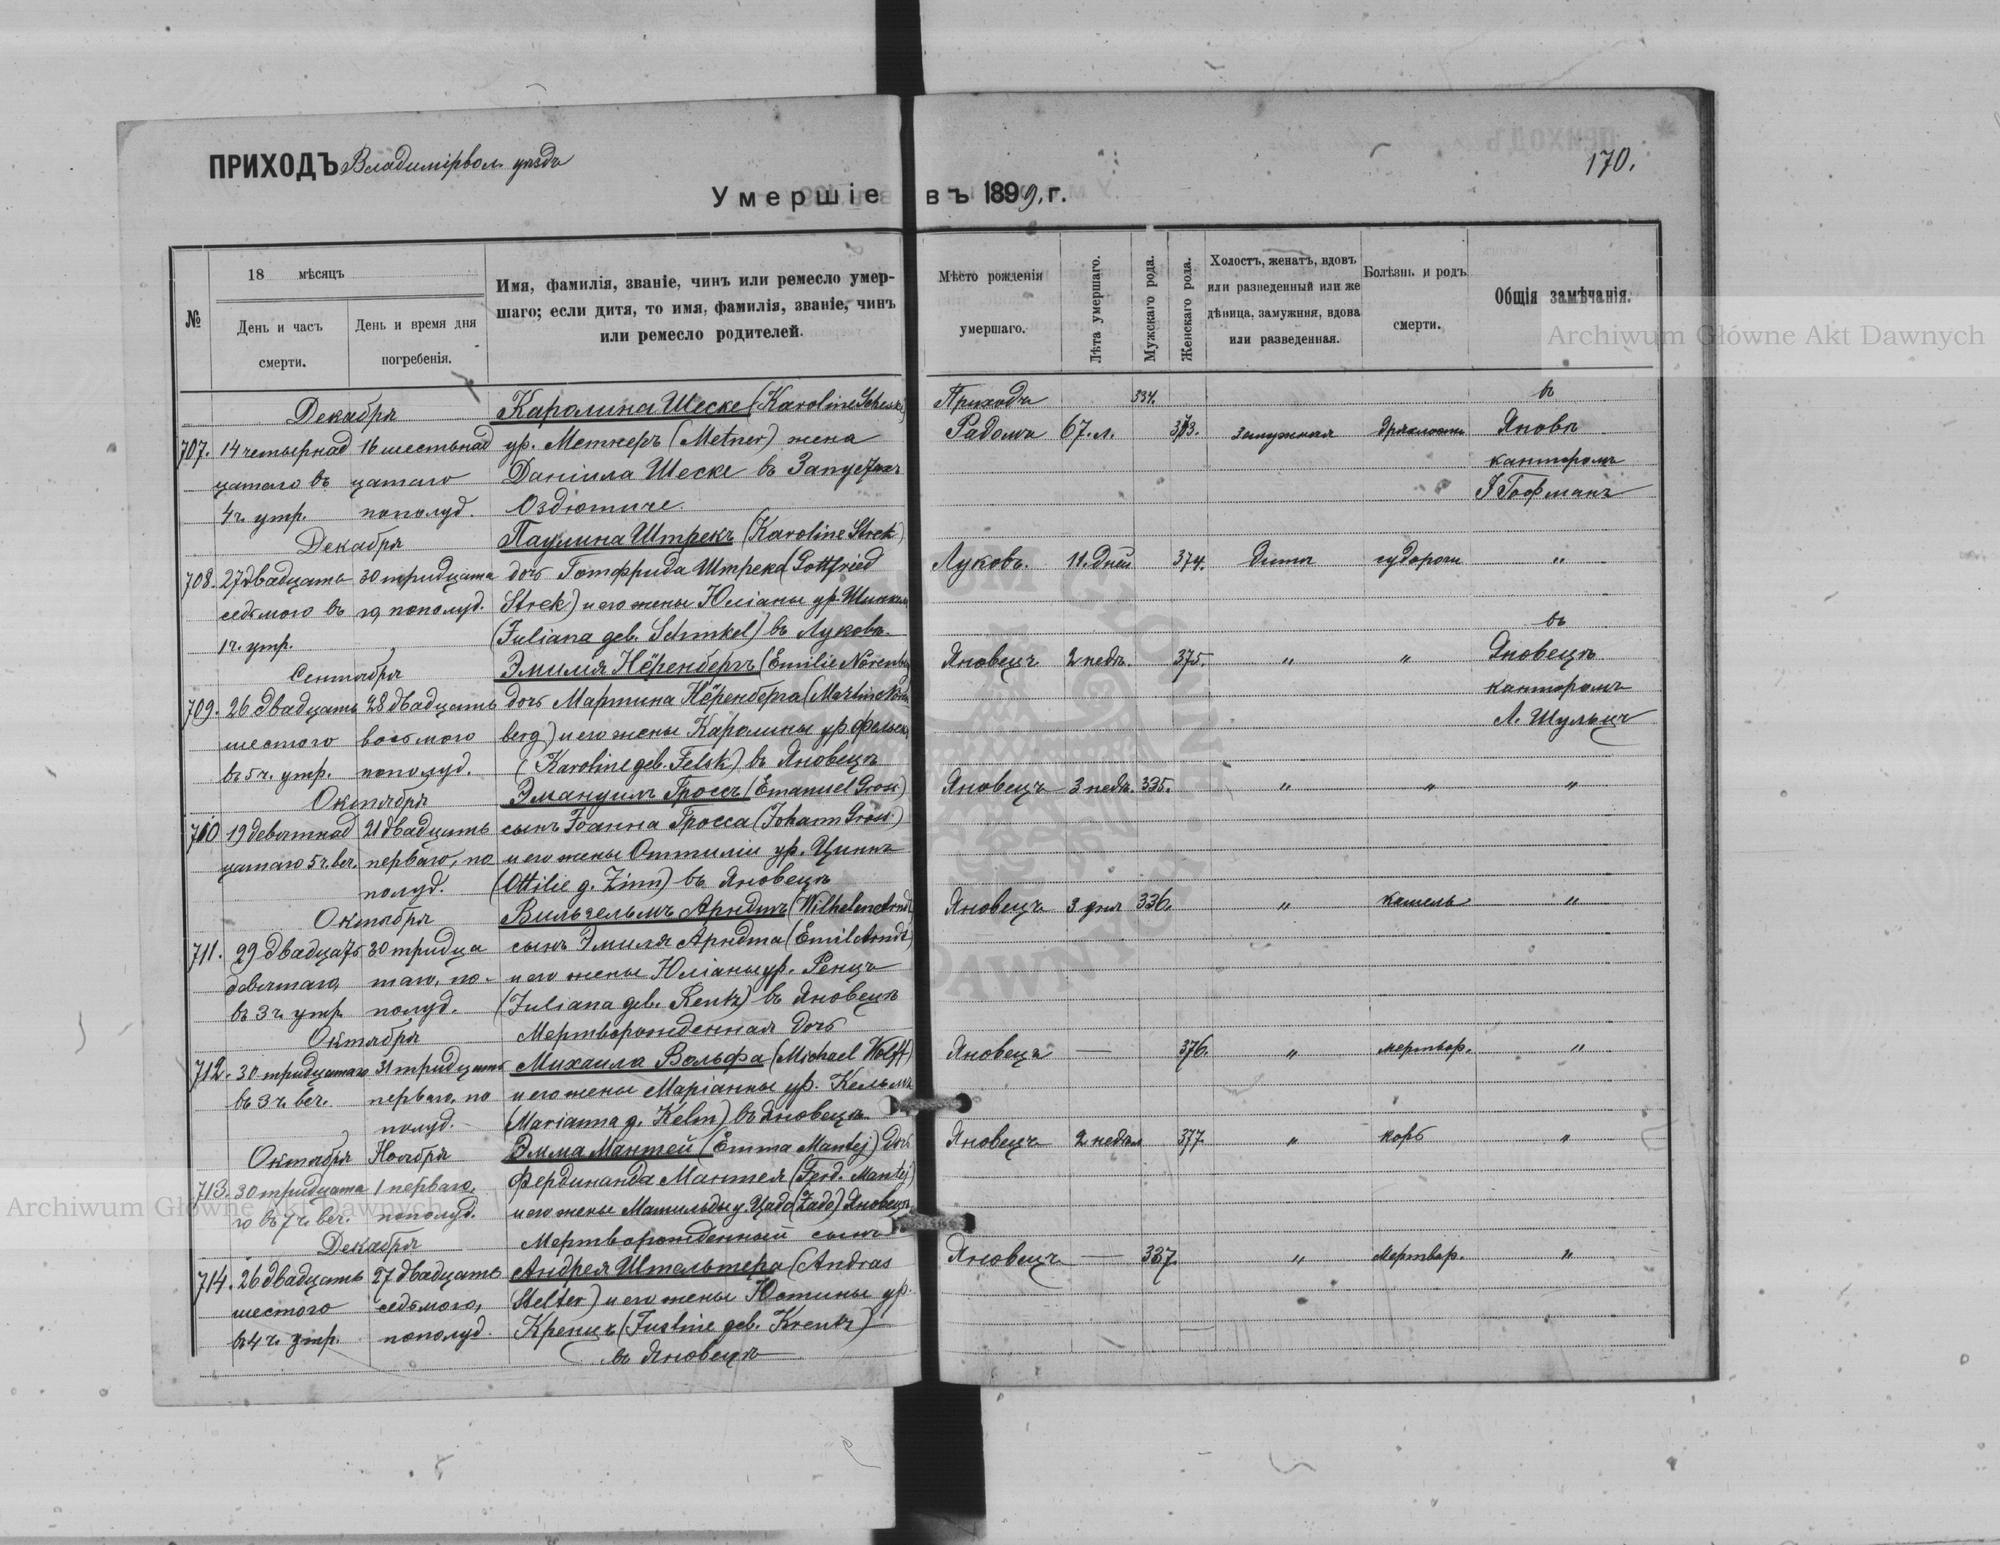 ПРИХОДЪ Владимірвол. уѣздъ
170.
Умершіе въ 1899. г.
№
18 мѣсяцъ
День и часъ смерти.
День и время дня погребенія.
Имя, фамилія, званіе, чинъ или ремесло умер-
шаго; если дитя, то имя, фамилія, званіе, чинъ
или ремесло родителей.
Мѣсто рожденія
умершаго.
Лѣта умершаго.
Мужскаго рода.
Женскаго рода.
Холостъ, женатъ, вдовъ
или разведенный или же
дѣвица, замужняя, вдова
или разведенная.
Болѣзнь и родъ
смерти.
Общія замѣчанія.
Archiwum Główne Akt Dawnych
Декабря Каролина Шеске (Karoline Scheske) Приходъ 334. въ
707. 14 четырнад 16 шестьнад ур. Метнеръ (Metner) жена Радомъ 67. л. 373. замужняя дряхлость Яновѣ
цатаго въ цатаго Даніила Шеске въ канторомъ
4 ч. утр. пополуд. Оздютиче. Гофманъ
Декабря Паулина Штрекъ (Karoline Strek)
708. 27 двадцать 30 тридцата дочь Готфрида Штрека (Gottfried Луковъ. 11. дней 374. дитя судороги "
седьмого въ го, пополуд. Strek) и его жены Юліаны ур. Шинкель
1 ч. утр. (Juliana geb. Schinkel) въ Луковѣ. въ
Сентября Эмилія Нёренбергъ (Emilie Nörenberg) Яновецъ 2 недѣ. 375. " " Яновецѣ
709. 26 двадцать 28 двадцать дочь Мартина Нёренберга (Martin Nören канторомъ
шестого восьмого berg) и его жены Каролины ур. Фельск Л. Шульцъ
въ 5 ч. утр. пополуд. (Karoline geb. Felsk) въ Яновецѣ
Октября Эмануилъ Гроссъ (Emanuel Gross) Яновецъ 3 недѣ. 335. " " "
710 19 девятнад 21 двадцать сынъ Іоанна Гросса (Johann Gross)
цатаго 5 ч. веч. перваго, по и его жены Оттиліи ур. Циннъ
полуд. (Ottilie g. Zinn) въ Яновецѣ
Октября Вильгельмъ Арндтъ (Wilhelm Arndt) Яновецъ 3 дня 336. " кашель "
711. 29 двадцать 30 тридца сынъ Эмиля Арндта (Emil Arndt)
девятаго, таго, по- и его жены Юліаны ур. Ренцъ
въ 3 ч. утр. полуд. (Juliana geb. Rentz) въ Яновецѣ
Октября Мертворожденная дочь
712. 30 тридцатаго 31 тридцать Михаила Вольфа (Michael Wolff) Яновецъ — 376. " мертвор. "
въ 3 ч. веч. перваго, по и его жены Маріанны ур. Кельмъ
полуд. (Marianna g. Kelm) въ Яновецѣ
Октября Ноября Эмма Мантей (Emma Mantej) дочь Яновецъ 2 недѣл 377. " корь "
713. 30 тридцата 1 перваго, Фердинанда Мантея (Ferd. Mantej)
го въ 7 ч. веч. пополуд. и его жены Матильды у. Цадо (Zado) Яновецѣ
Archiwum Główne Akt Dawnych
Декабря Мертворожденный сынъ
714. 26 двадцать 27 двадцать Андрея Штельтера (Andras Яновецъ — 337. " мертвор. "
шестого седьмого, Stelter) и его жены Юстины ур.
въ 4 ч. утр. пополуд. Кренцъ (Justine geb. Krentz)
въ Яновецѣ